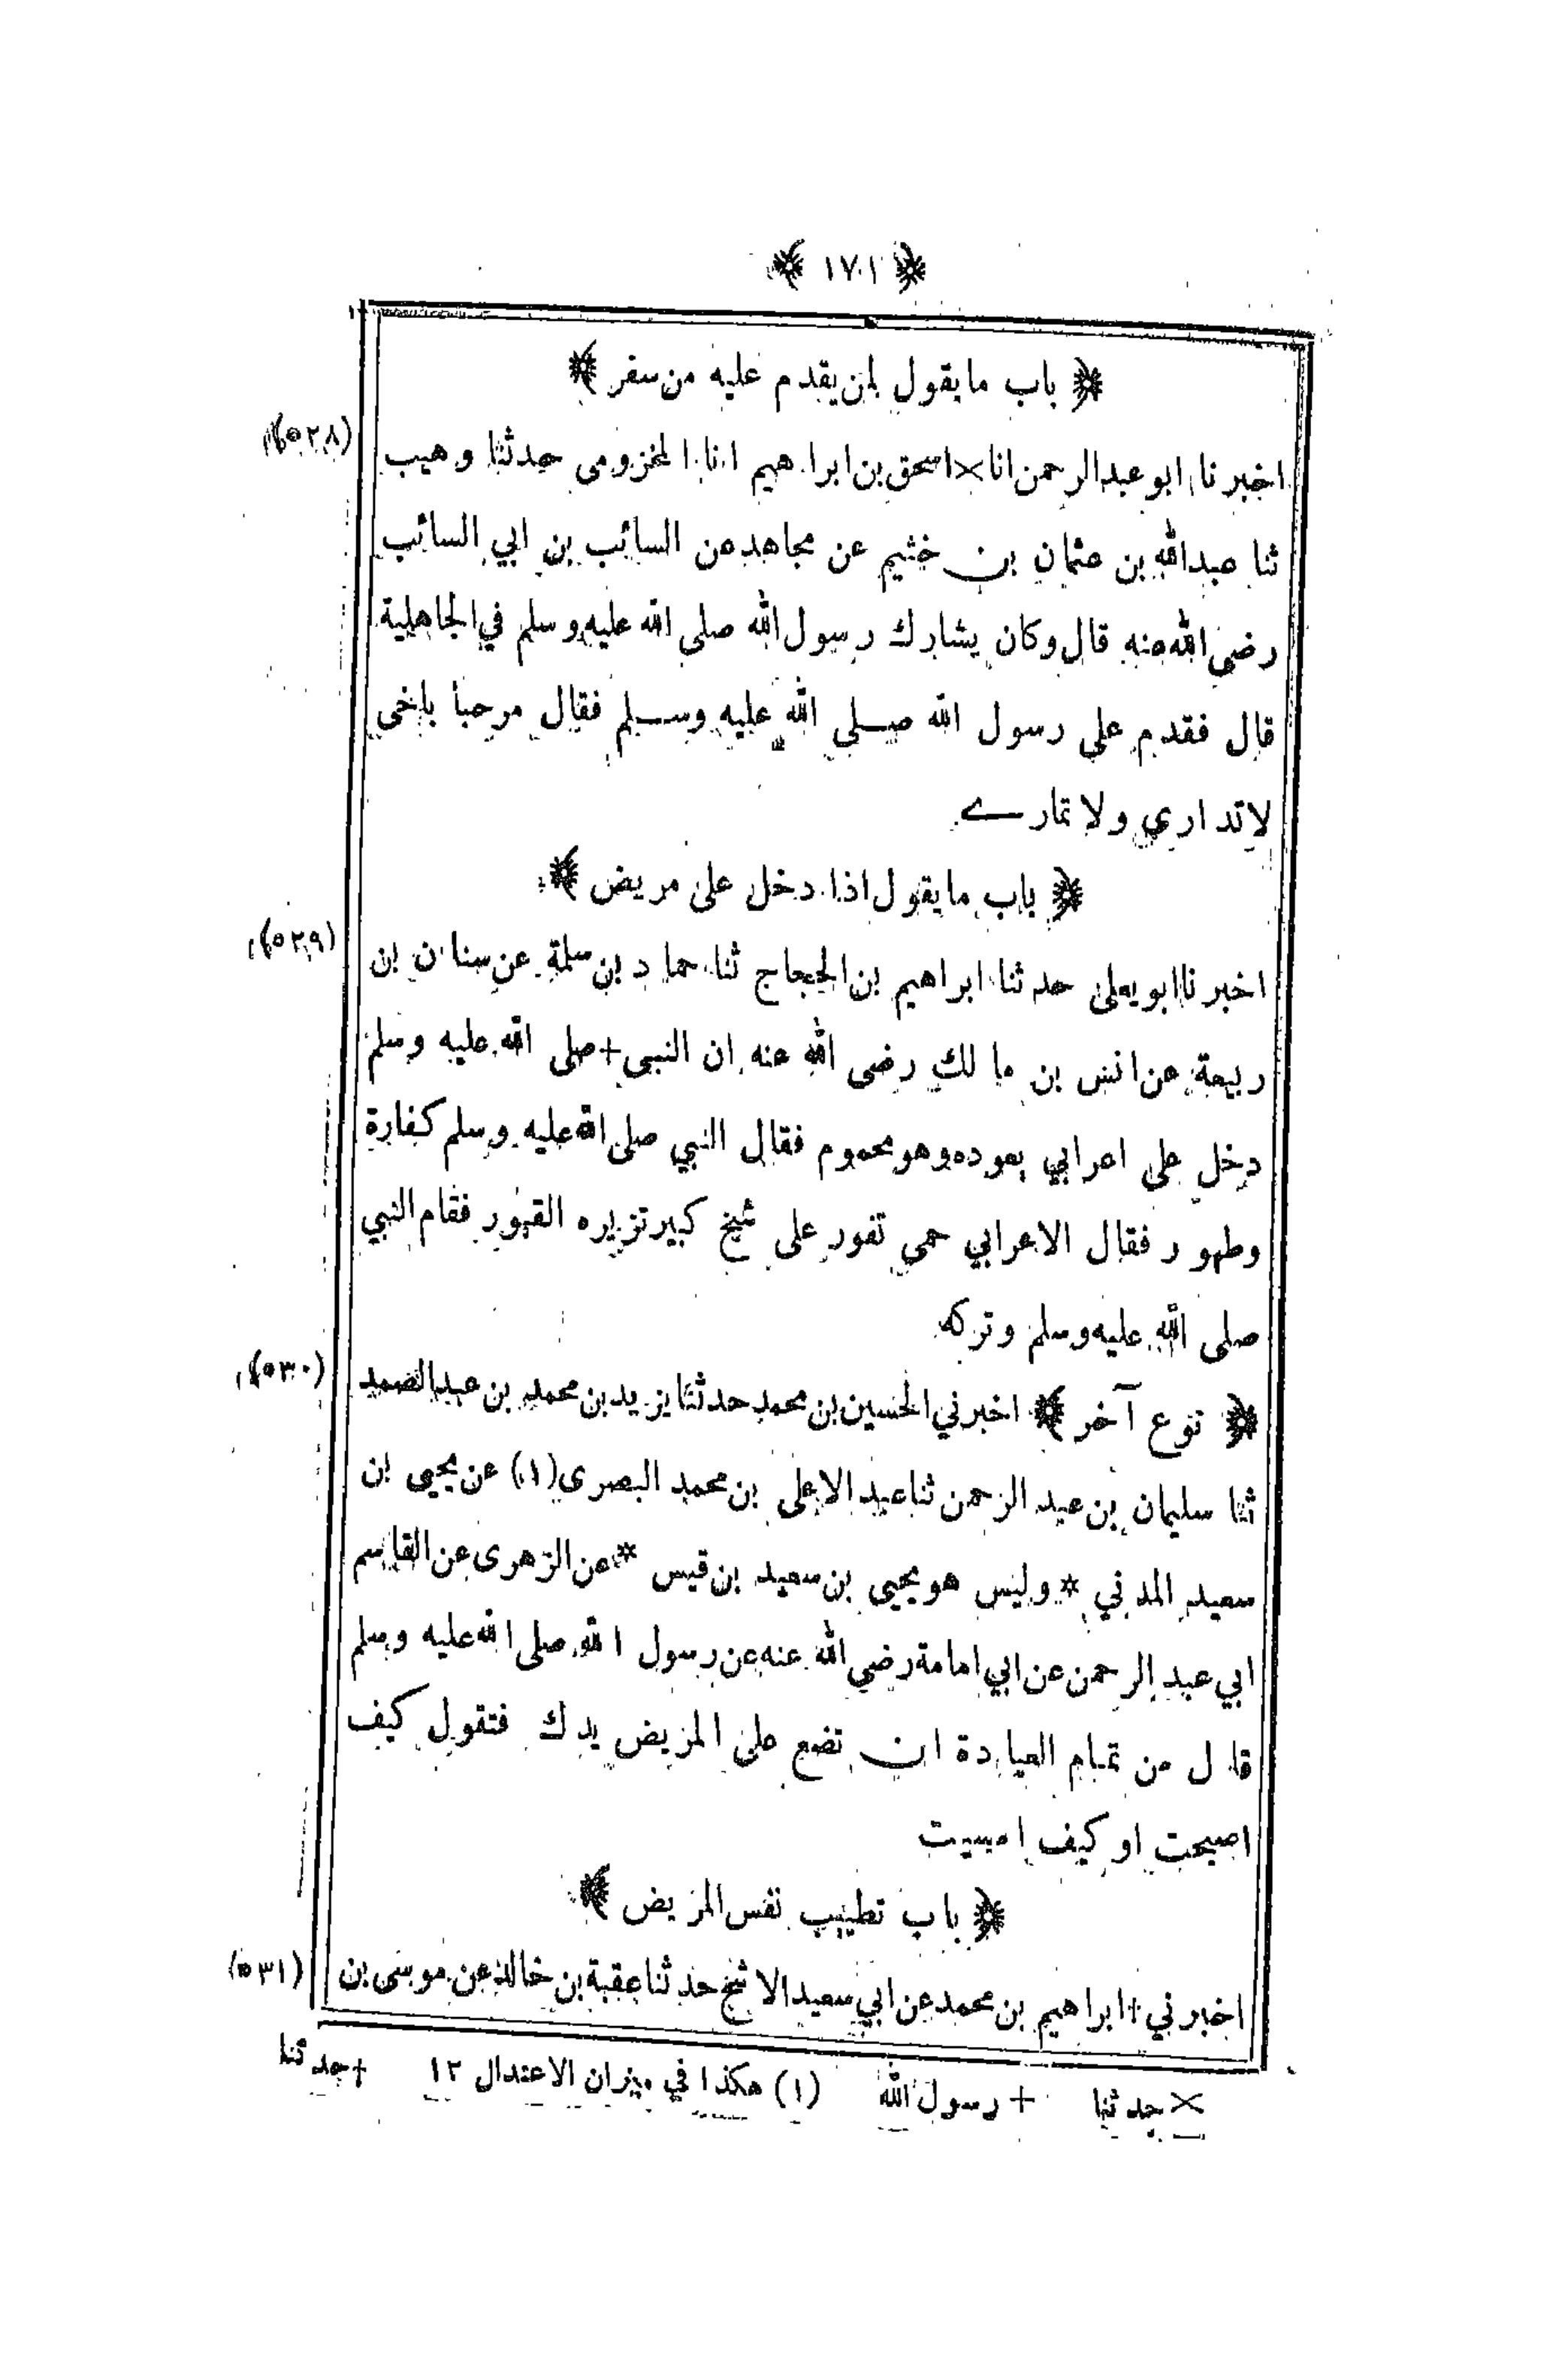 ﴿ ١٧١ ﴾
﴿ باب ما يقول لمن يقدم عليه من سفر ﴾
اخبرنا ابو عبد الرحمن انا × اسحق بن ابراهيم انا المخزومى حدثنا وهيب (٥٢٨)
ثنا عبد الله بن عثمان بن خثيم عن مجاهد عن السائب بن ابي السائب
رضى الله عنه قال وكان يشارك رسول الله صلى الله عليه وسلم في الجاهلية
قال فقدم على رسول الله صلى الله عليه وسلم فقال مرحبا باخى
لا تداري ولا تمارے
﴿ باب ما يقول اذا دخل على مريض ﴾
اخبرنا ابو يعلى حدثنا ابراهيم بن الحجاج ثنا حماد بن سلمة عن سنان بن (٥٢٩)
ربيعة عن انس بن مالك رضى الله عنه ان النبى + صلى الله عليه وسلم
دخل على اعرابي يعوده وهو محموم فقال النبي صلى الله عليه وسلم كفارة
وطهور فقال الاعرابي حمى تفور على شيخ كبير تزيره القبور فقام النبي
صلى الله عليه وسلم وتركه
﴿ نوع آخر ﴾ اخبرني الحسين بن محمد حدثنا يزيد بن محمد بن عبد الصمد (٥٣٠)
ثنا سليمان بن عبد الرحمن ثنا عبد الاعلى بن محمد البصرى (١) عن يحيى بن
سعيد المدني * وليس هو يحيى بن سعيد بن قيس * عن الزهرى عن القاسم
ابي عبد الرحمن عن ابي امامة رضي الله عنه عن رسول الله صلى الله عليه وسلم
قال من تمام العيادة ان تضع على المريض يدك فتقول كيف
اصبحت او كيف امسيت
﴿ باب تطييب نفس المريض ﴾
اخبرني + ابراهيم بن محمد عن ابي سعيد الاشج حدثنا عقبة بن خالد عن موسى بن (٥٣١)
× حدثنا + رسول الله (١) هكذا في ميزان الاعتدال ١٢ + حدثنا